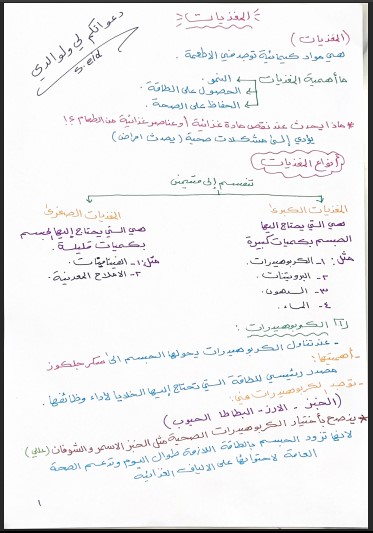 المغذيات
دعواتكم لي ولوالدي
(المغذيات)
هي مواد كيميائية توجد في الاطعمة .
ما أهمية المغذيات
النمو .
الحصول على الطاقة .
الحفاظ على الصحة .
* ماذا يحدث عند نقص مادة غذائية أو عناصر غذائية من الطعام ؟!
يؤدي إلى مشكلات صحية (يحدث امراض)
أنواع المغذيات
تنقسم إلى قسمين
المغذيات الكبرى
هي التي يحتاج إليها
الجسم بكميات كبيرة
مثل : ١- الكربوهيدرات .
٢- البروتينات .
٣- الدهون .
٤- الماء .
المغذيات الصغرى
هي التي يحتاج إليها الجسم
بكميات قليلة .
مثل : ١- الفيتامينات .
٢- الاملاح المعدنية .
١] الكربوهيدرات :
- عند تناول الكربوهيدرات يحولها الجسم الى سكر جلكوز
- أهميتها :
مصدر رئيسي للطاقة التي تحتاج إليها الخلايا لأداء وظائفها .
- توجد الكربوهيدرات في :
(الخبز - الارز - البطاطا الحبوب)
* ينصح بأختيار الكربوهيدرات الصحية مثل الخبز الاسمر والشوفان (علل)
لانها تزود الجسم بالطاقة اللازمة طوال اليوم وتدعم الصحة
العامة لاحتوائها على الالياف الغذائية
١